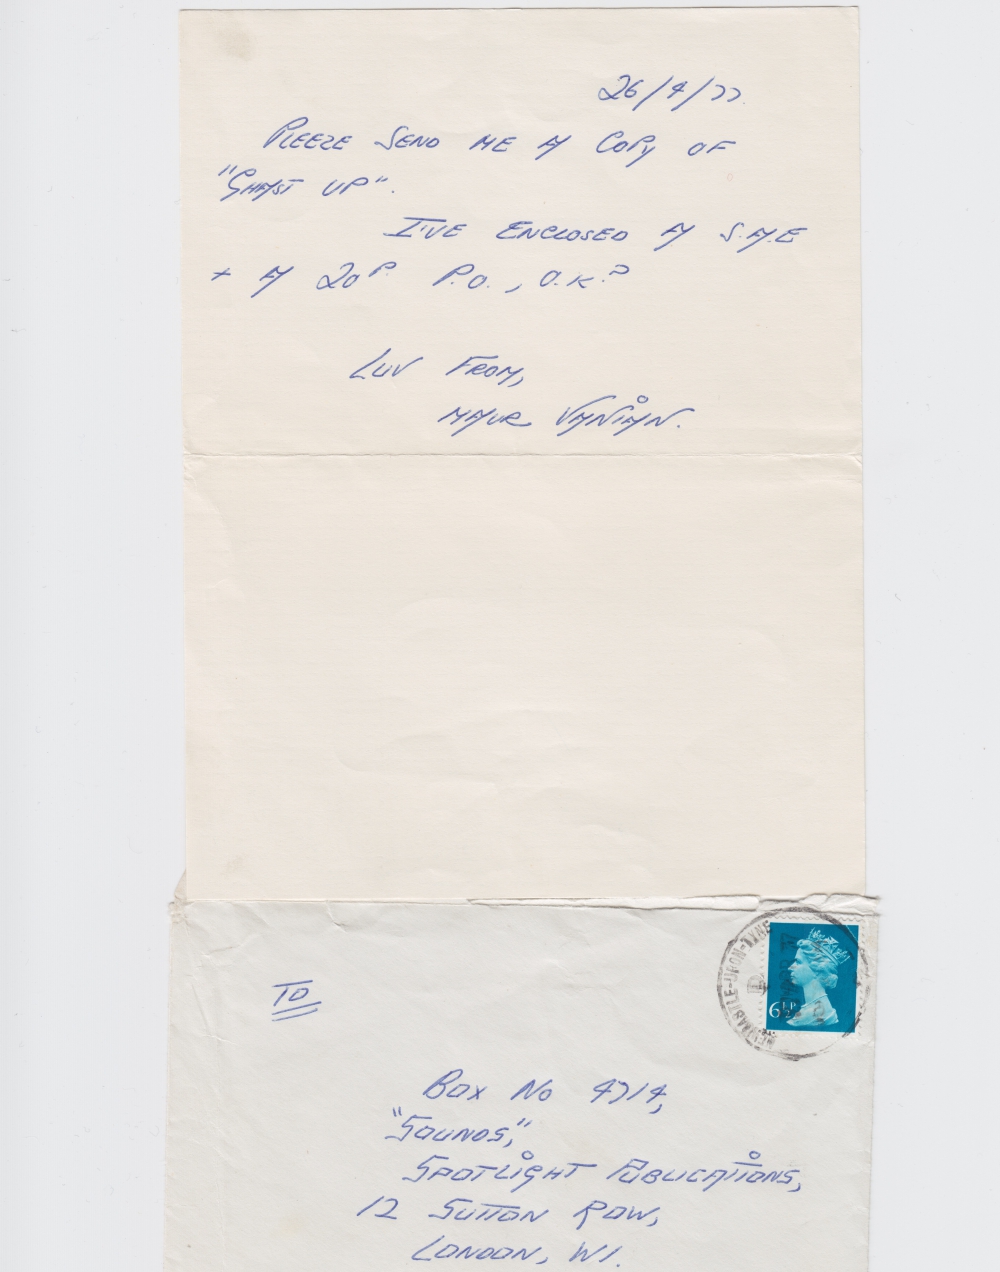 26/4/77.
PLEEZE SEND ME A COPY OF
"GHAST UP".
I'VE ENCLOSED A S.A.E
+ A 20P. P.O., O.K.?
LUV FROM,
VANIAN.
NEWCASTLE-UPON-TYNE
6½P
TO
BOX NO 4714,
"SOUNDS,"
SPOTLIGHT PUBLICATIONS,
12 SUTTON ROW,
LONDON, W1.